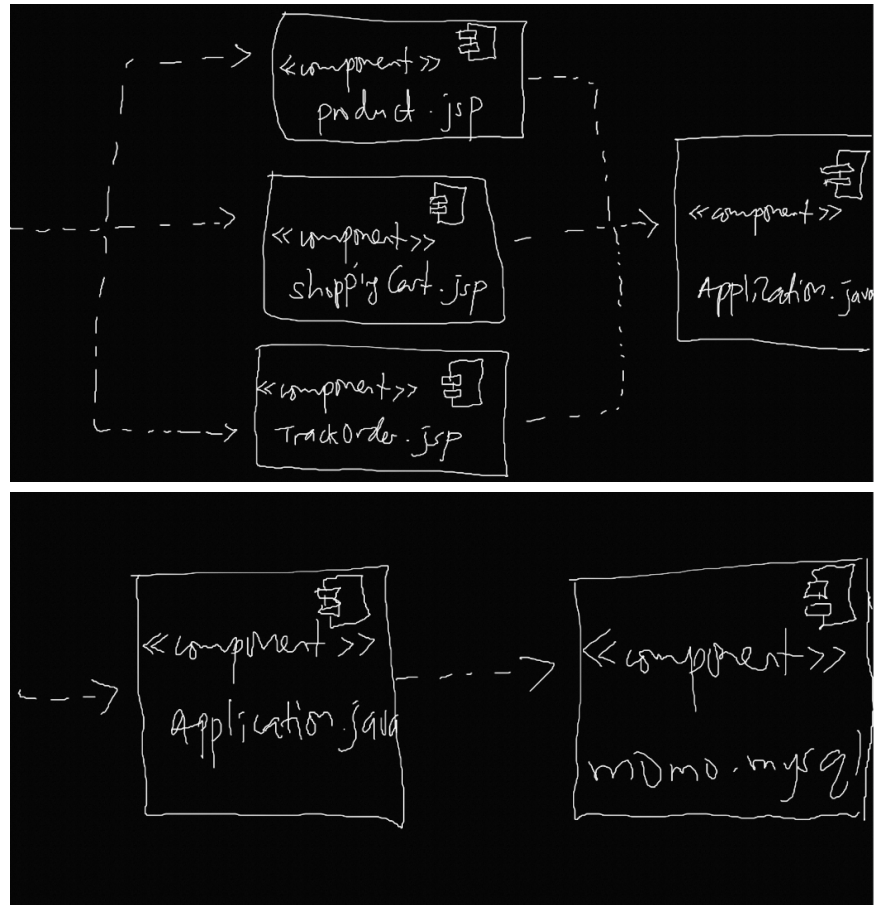 <<component>>
product.jsp
<<component>>
shoppingCart.jsp
<<component>>
TrackOrder.jsp
<<component>>
Application.java
<<component>>
Application.java
<<component>>
momo.mysql